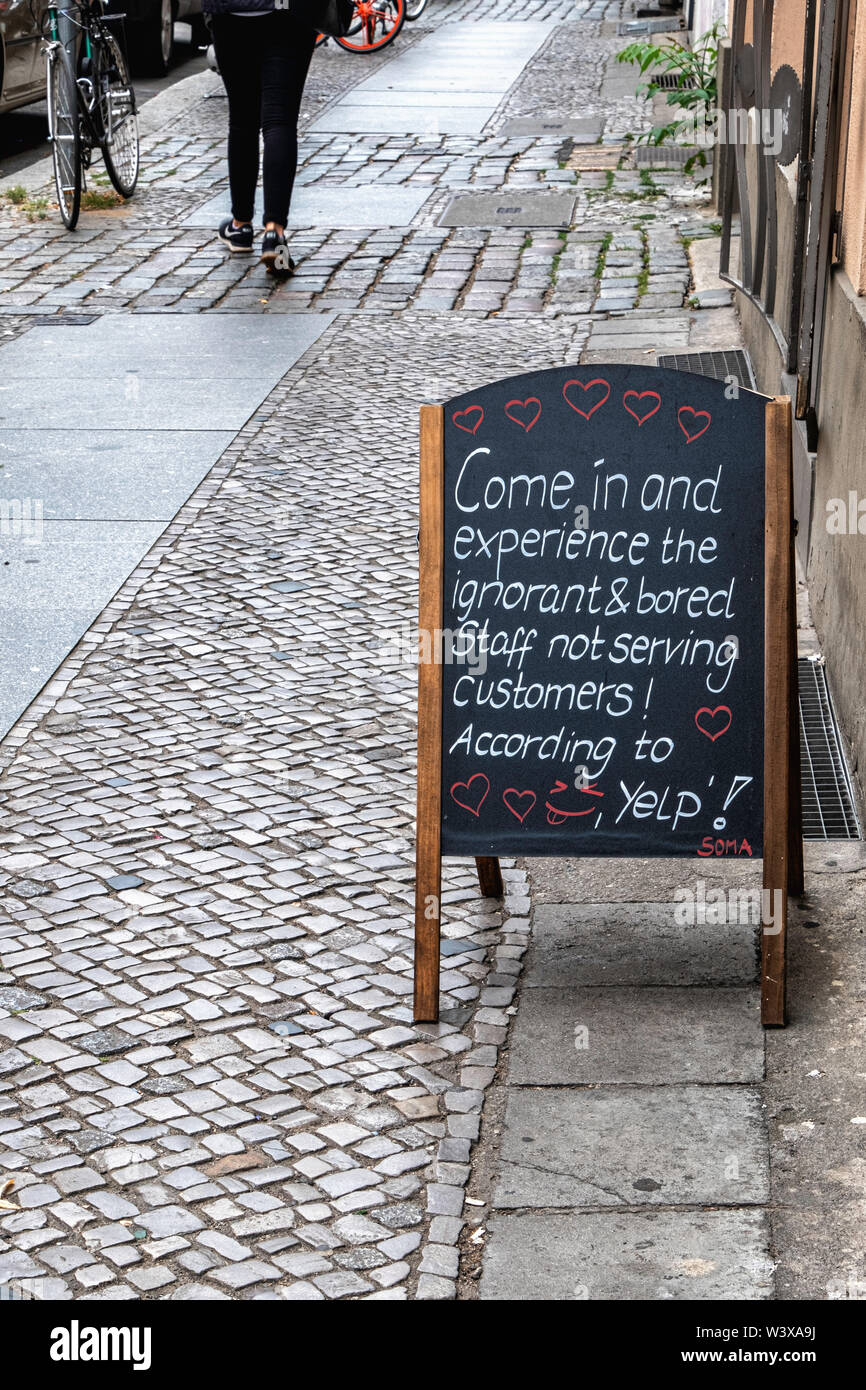 Come in and
experience the
ignorant & bored
Staff not serving
customers!
According to
, Yelp'!
SOMA
alamy
Image ID: W3XA9J
www.alamy.com